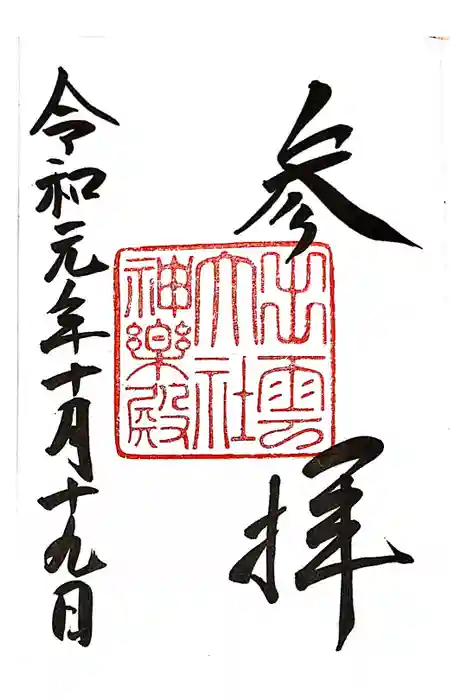 参拝
出雲
大社
神樂殿
令和元年十月十九日